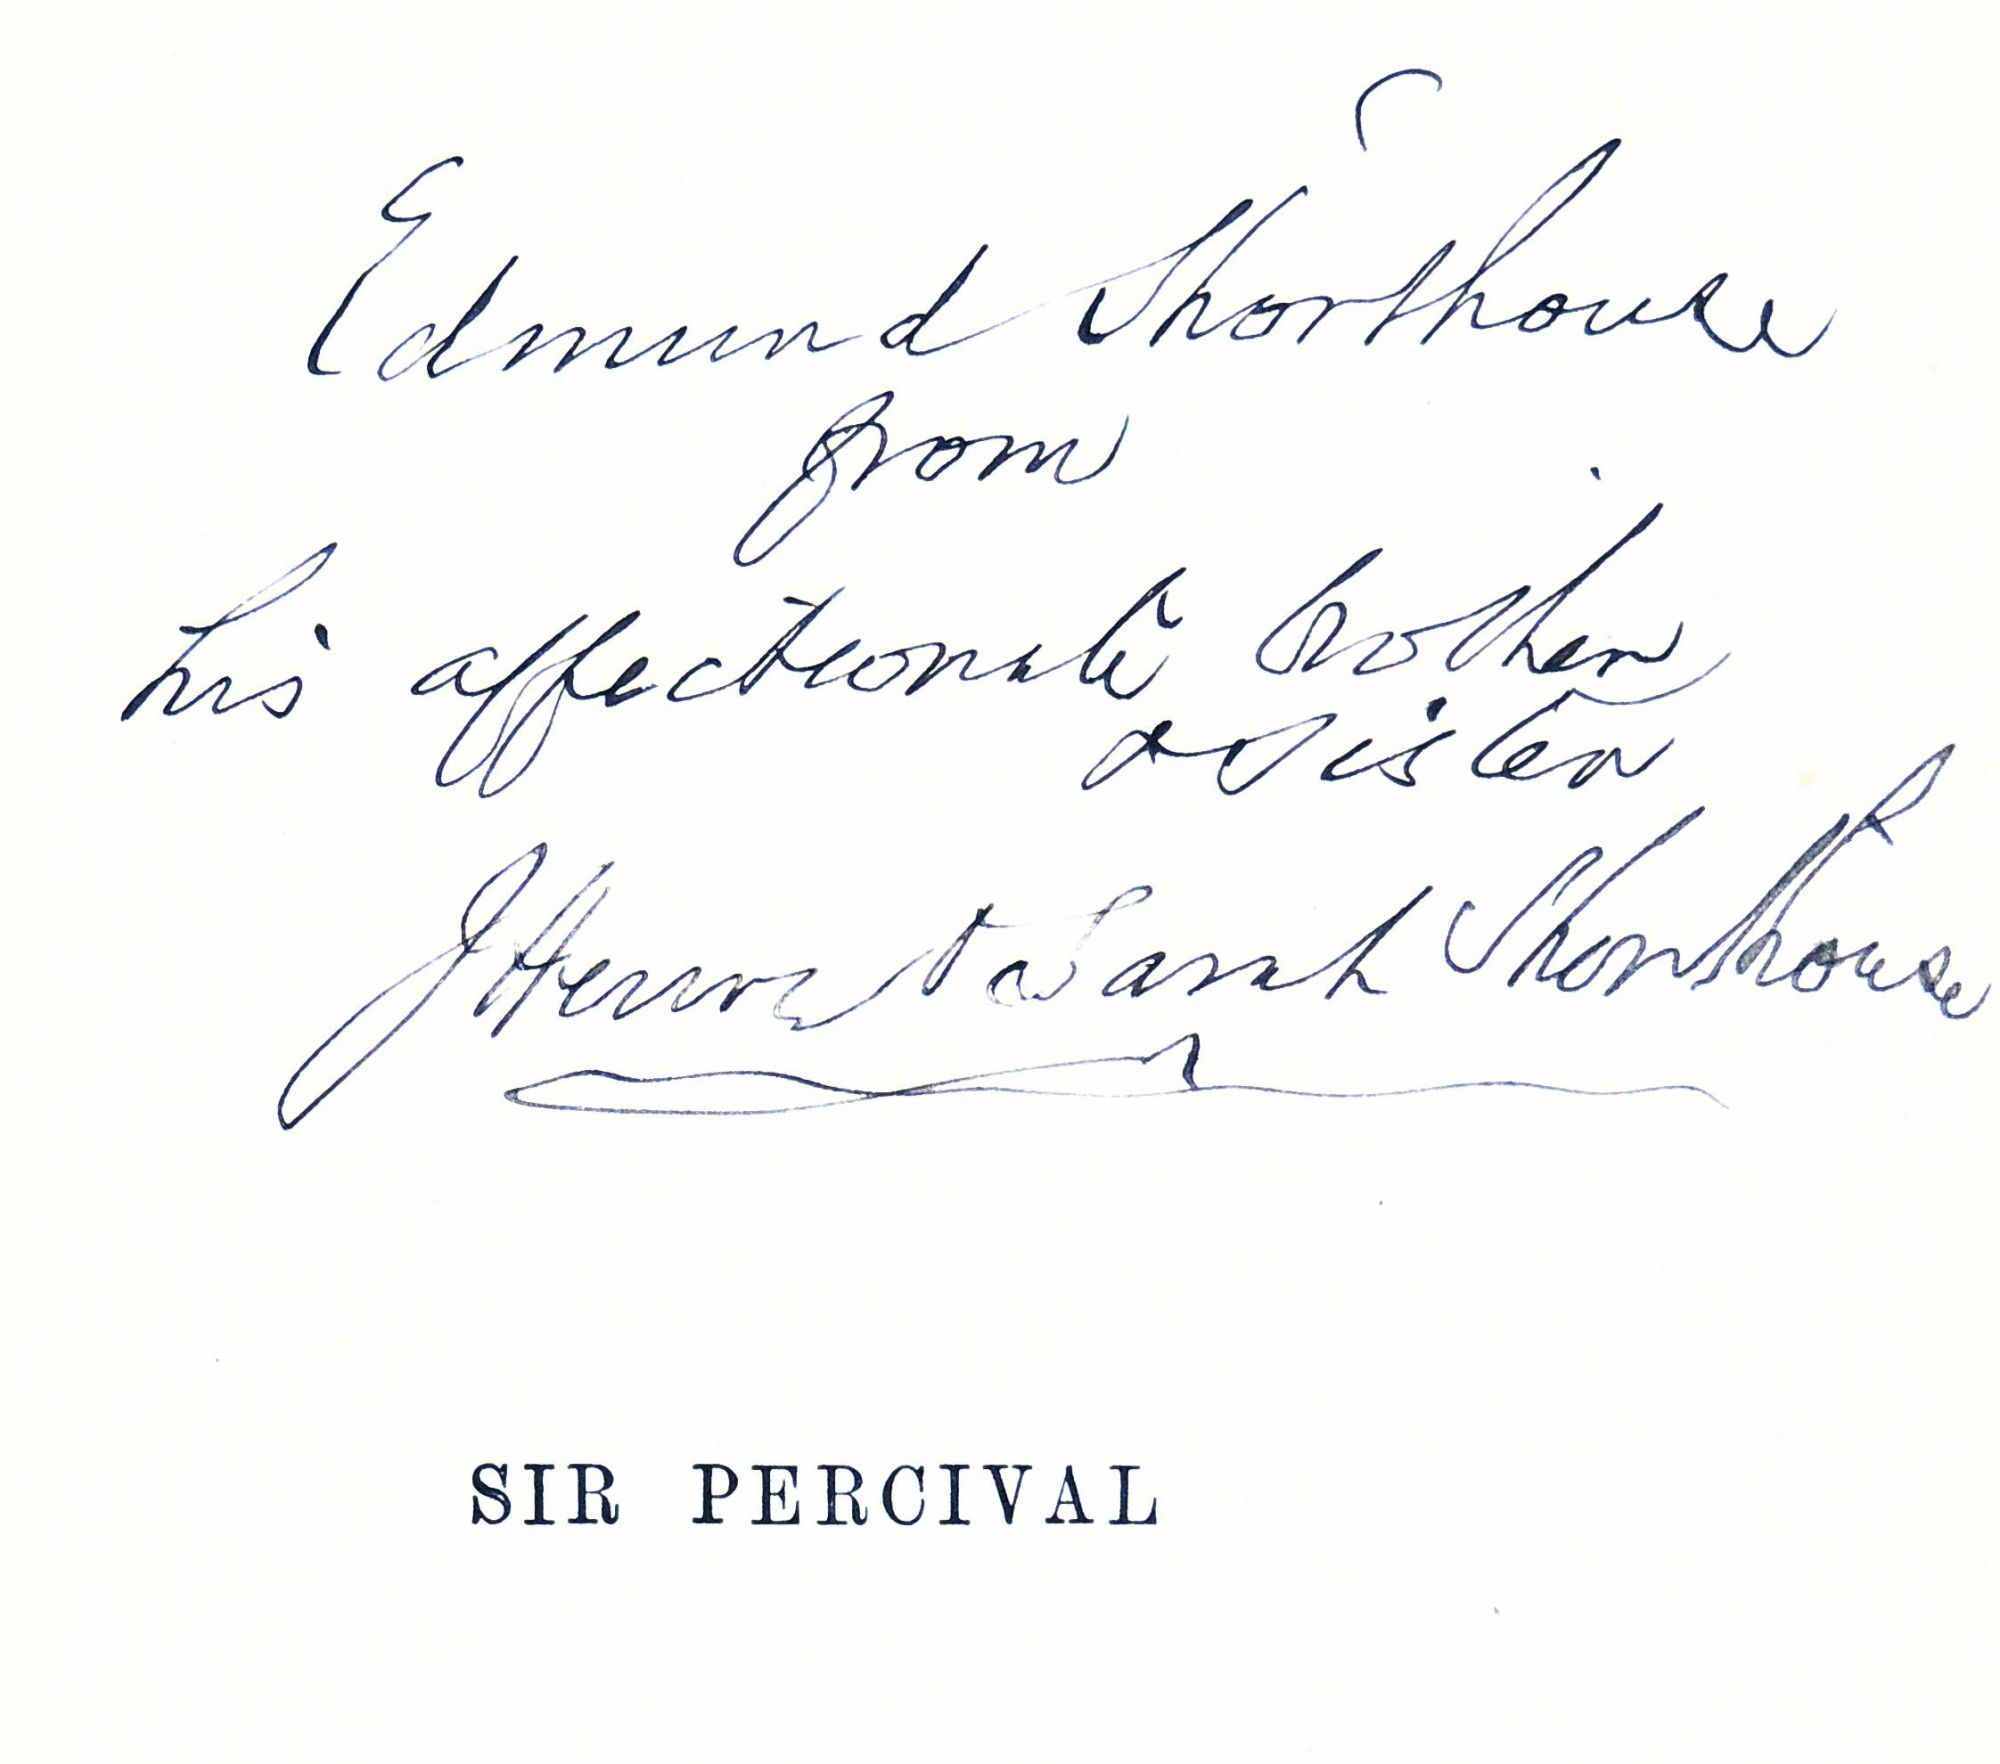 Edmund Shorthouse
from
his affectionate brother
& sister
J Henry & Sarah Shorthouse
SIR PERCIVAL